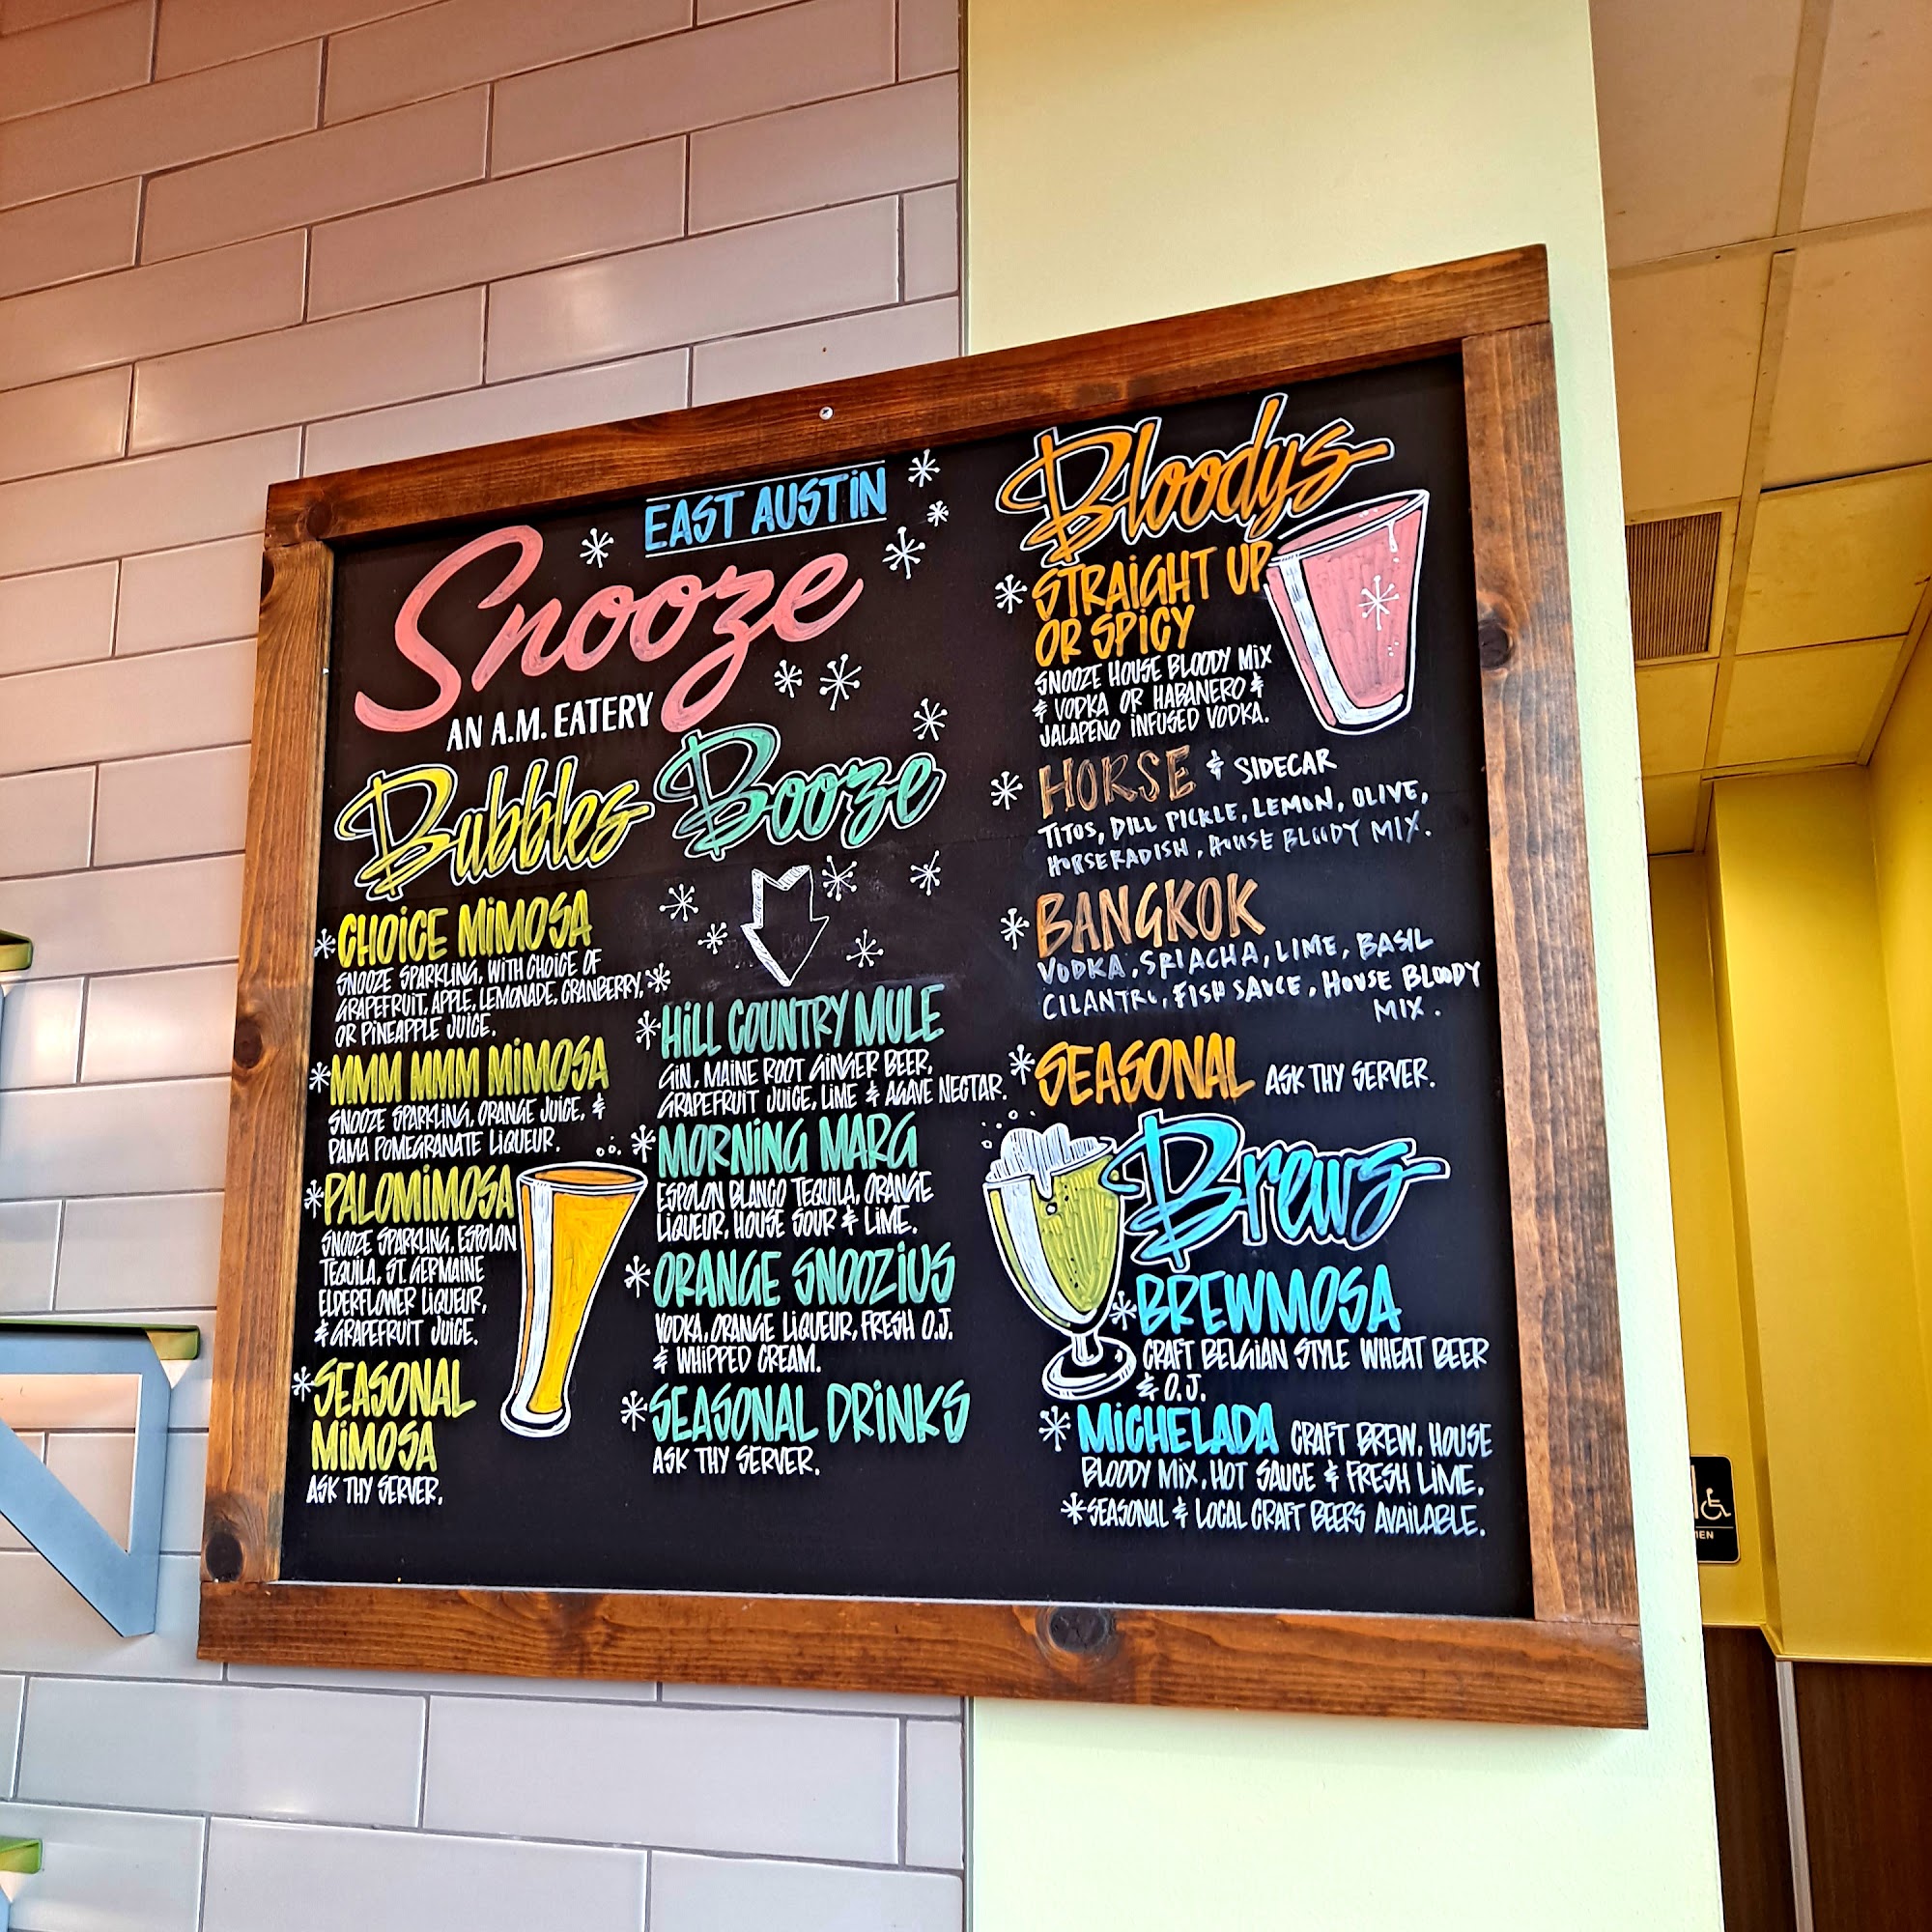 EAST AUSTIN
Snooze
AN A.M. EATERY
Bubbles
CHOICE MIMOSA
SNOOZE SPARKLING, WITH CHOICE OF
GRAPEFRUIT, APPLE, LEMONADE, CRANBERRY,
OR PINEAPPLE JUICE.
MMM MMM MIMOSA
SNOOZE SPARKLING, ORANGE JUICE, &
PAMA POMEGRANATE LIQUEUR.
PALOMIMOSA
SNOOZE SPARKLING, ESPOLON
TEQUILA, ST. GERMAINE
ELDERFLOWER LIQUEUR,
& GRAPEFRUIT JUICE.
SEASONAL
MIMOSA
ASK THY SERVER.
Booze
HILL COUNTRY MULE
GIN, MAINE ROOT GINGER BEER,
GRAPEFRUIT JUICE, LIME & AGAVE NECTAR.
MORNING MARG
ESPOLON BLANCO TEQUILA, ORANGE
LIQUEUR, HOUSE SOUR & LIME.
ORANGE SNOOZIUS
VODKA, ORANGE LIQUEUR, FRESH O.J.
& WHIPPED CREAM.
SEASONAL DRINKS
ASK THY SERVER.
Bloodys
STRAIGHT UP
OR SPICY
SNOOZE HOUSE BLOODY MIX
& VODKA OR HABANERO &
JALAPENO INFUSED VODKA.
HORSE & SIDECAR
TITOS, DILL PICKLE, LEMON, OLIVE,
HORSERADISH, HOUSE BLOODY MIX.
BANGKOK
VODKA, SRIACHA, LIME, BASIL
CILANTRO, FISH SAUCE, HOUSE BLOODY
MIX.
SEASONAL ASK THY SERVER.
Brews
BREWMOSA
CRAFT BELGIAN STYLE WHEAT BEER
& O.J.
MICHELADA CRAFT BREW, HOUSE
BLOODY MIX, HOT SAUCE & FRESH LIME.
*SEASONAL & LOCAL CRAFT BEERS AVAILABLE.